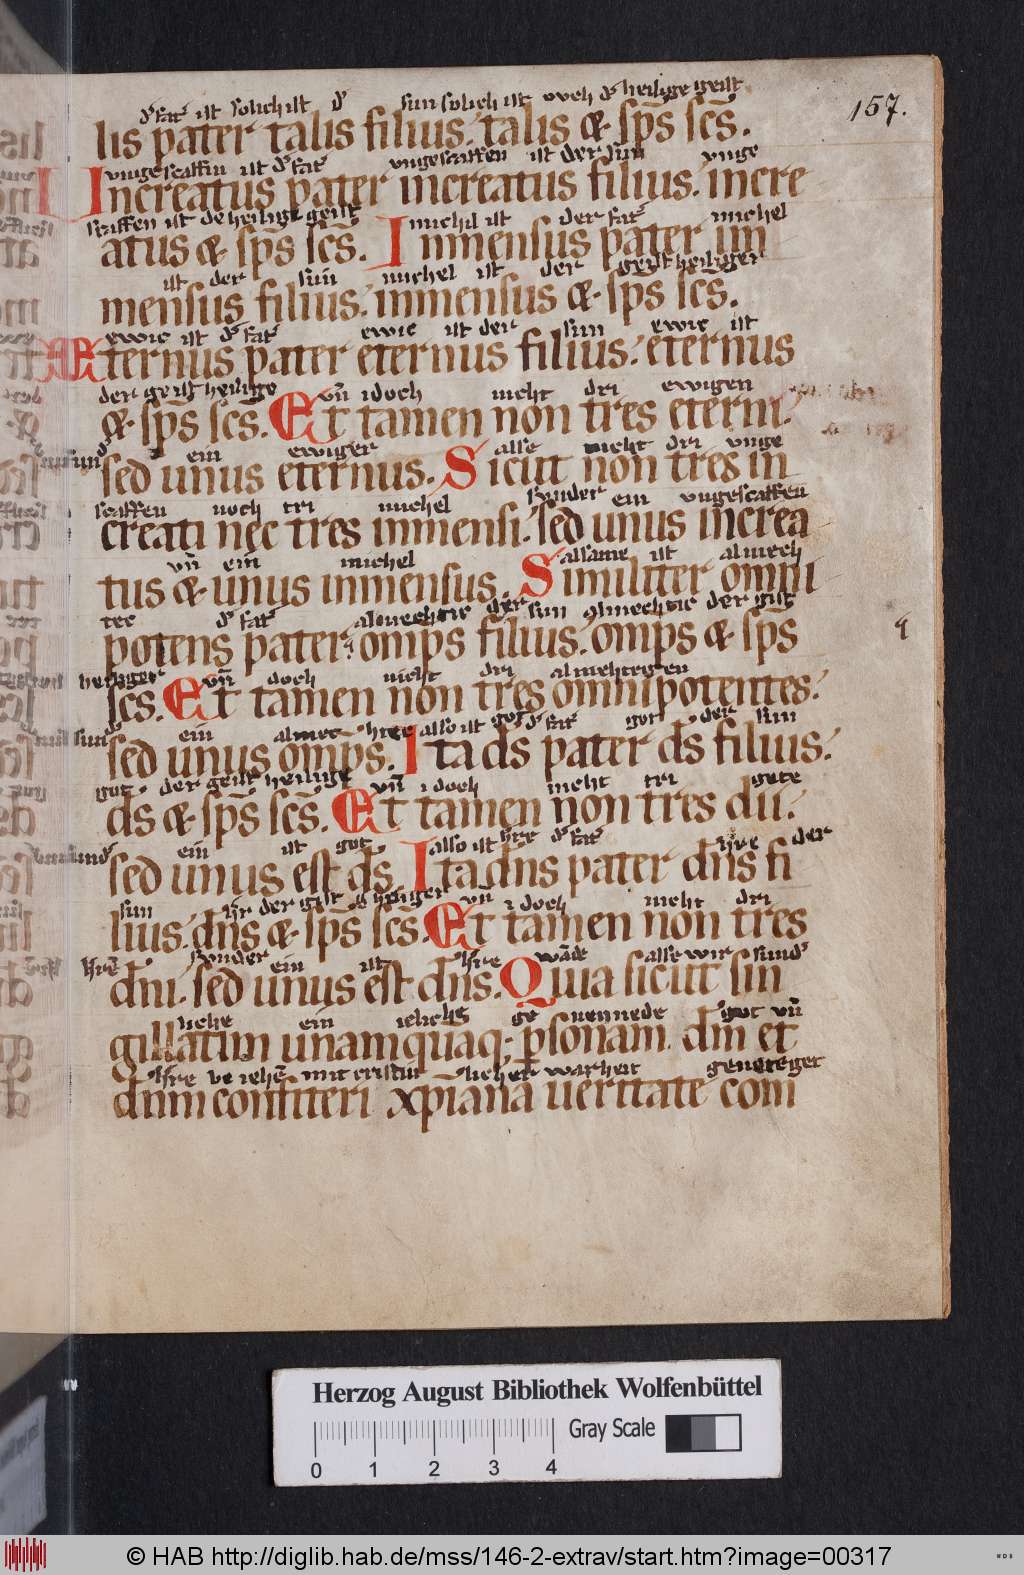 d' fat' ist solich ist d' sun solich ist och d' heilige geist
157.
lis pater talis filius. talis & sp̄s sc̄s.
ungescaffin ist d' fat' ungescaffen ist der sun unge
Increatus pater increatus filius. incre
scaffen ist de heilige geist michil ist der fat' michel
atus & sp̄s sc̄s. Inmensus pater im
ist der sun michel ist der geist heiliger
mensus filius. inmensus & sp̄s sc̄s.
ewic ist d' fat' ewic ist der sun ewic ist
Æternus pater eternus filius. eternus
der geist heilige uñ idoch nicht dri ewigen
& sp̄s sc̄s. Et tamen non tres eterni.
ein ewiger alse nicht dri unge
sed unus eternus. Sicut non tres in
scaffen noch tri michel sunder ein ungescaffen
creati nec tres inmensi. sed unus increa
uñ ein michel alsame ist almech
tus & unus inmensus. Similiter omni
tec d' fat' almechtic der sun almechtic der gist
potens pater omp̄s filius. omp̄s & sp̄s
heiliger uñ doch nicht dri almehtegen
sc̄s. Et tamen non tres omnipotentes.
ein almec htec also ist got d' fat' got der sun
sed unus omp̄s. Ita d̄s pater d̄s filius.
got der geist heilige uñ idoch nicht tri gote
d̄s & sp̄s sc̄s. Et tamen non tres dii.
ein ist got also ist h're d' fat' h're der
sed unus est d̄s. Ita dn̄s pater dn̄s fi
sun h'r der gist d' heiliger uñ idoch nicht dri
lius. dn̄s & sp̄s sc̄s. Et tamen non tres
h'rē sunder ein ist h're wāde alse wir sund'
dn̄i. sed unus est dn̄s. Quia sicut sin
liche ein ieliche ge nennede got uñ
gillatim unamquaq; p̱sonam. dm̄ et
h're be iehē mit cristin licher warheit geneteget
dn̄m confiteri xp̄iana ueritate com
Herzog August Bibliothek Wolfenbüttel
Gray Scale
0 1 2 3 4
© HAB http://diglib.hab.de/mss/146-2-extrav/start.htm?image=00317